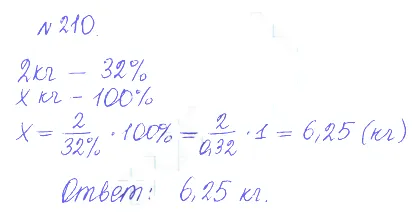 № 210.
2кг – 32%
х кг – 100%
х = 2/32% · 100% = 2/0,32 · 1 = 6,25 (кг)
Ответ: 6,25 кг.